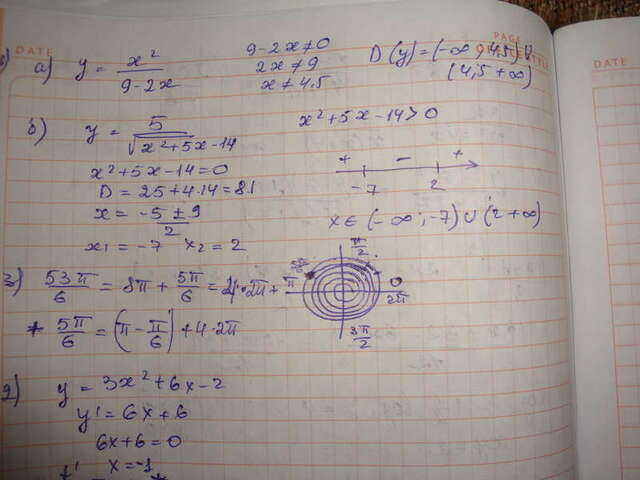 DATE
PAGE
DATE
а) y = x² / (9-2x)   9-2x≠0   D(y)=(-∞; 4,5)∪
2x≠9   (4,5 +∞)
x≠4,5
б) y = 5 / √(x²+5x-14)   x²+5x-14>0
x²+5x-14=0   + - +
D = 25+4·14=81   -7   2
x = (-5±9)/2   x∈(-∞; -7)∪(2 +∞)
x₁ = -7   x₂ = 2
3) 53π/6 = 8π + 5π/6 = 4·2π +   π   π/2   0   2π   3π/2
+ 5π/6 = (π - π/6) + 4·2π
y = 3x²+6x-2
y' = 6x+6
6x+6=0
x=-1